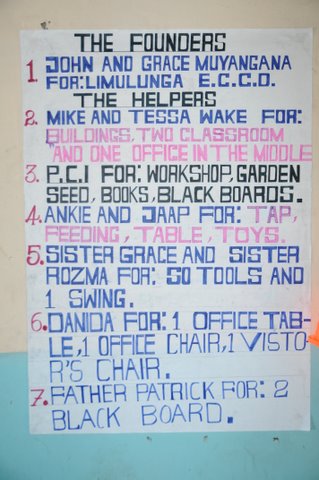 THE FOUNDERS
1 JOHN AND GRACE MUYANGANA
FOR:LIMULUNGA E.C.C.D.
THE HELPERS
2. MIKE AND TESSA WAKE FOR:
BUILDINGS, TWO CLASSROOM
"AND ONE OFFICE IN THE MIDDLE
3. P.C.I FOR: WORKSHOP, GARDEN
SEED, BOOKS, BLACK BOARDS.
4. ANKIE AND JAAP FOR: TAP,
FEEDING, TABLE, TOYS.
5. SISTER GRACE AND SISTER
ROZMA FOR: 50 TOOLS AND
1 SWING.
6. DANIDA FOR: 1 OFFICE TAB-
LE, 1 OFFICE CHAIR, 1 VISTO-
R'S CHAIR.
7. FATHER PATRICK FOR: 2
BLACK BOARD.